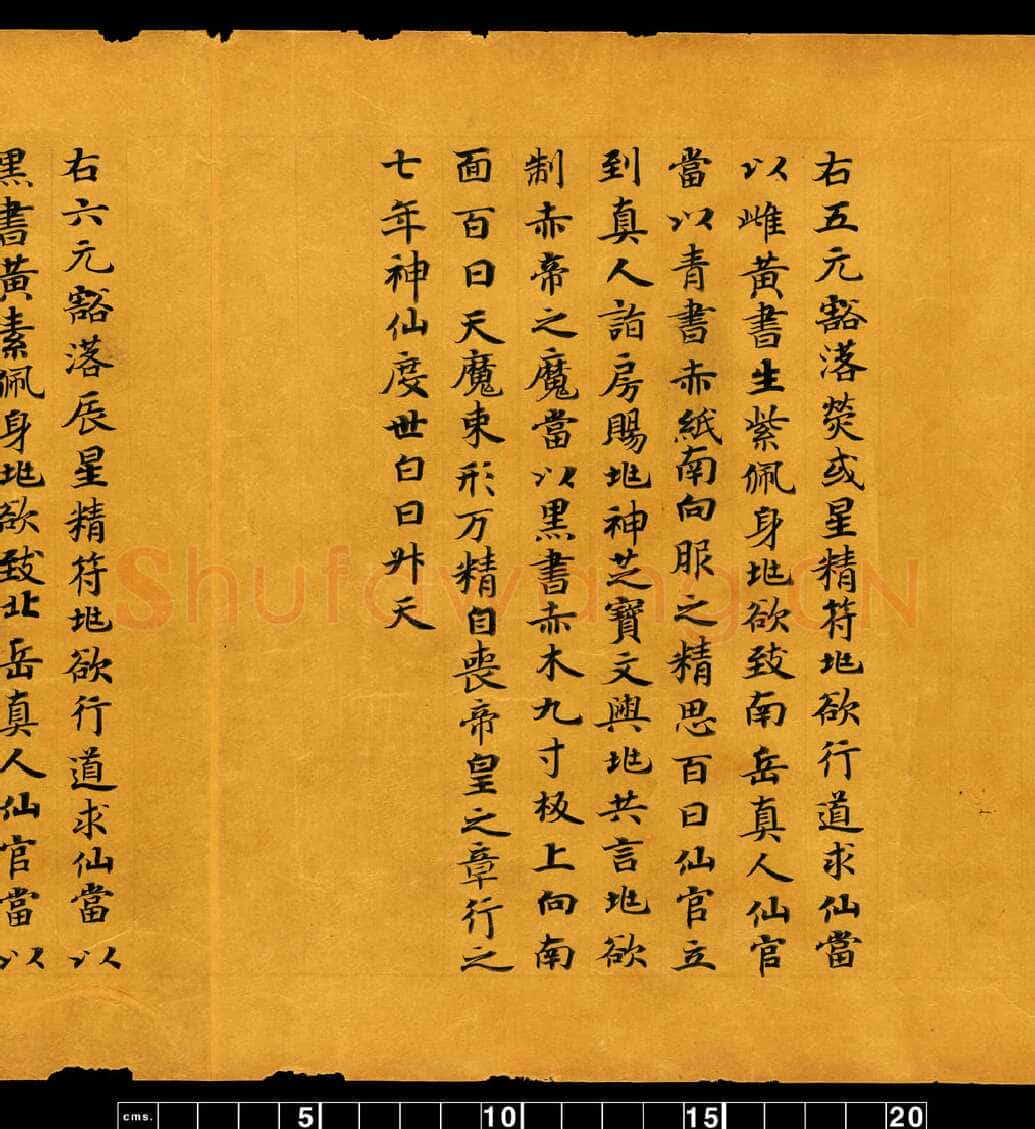 右五元豁落熒或星精符兆欲行道求仙當
以雌黃書生紫佩身兆欲致南岳真人仙官
當以青書赤紙南向服之精思百日仙官立
到真人詣房賜兆神芝寶文與兆共言兆欲
制赤帝之魔當以黑書赤木九寸板上向南
面百日天魔束形万精自喪帝皇之章行之
七年神仙度世白日升天
右六元豁落辰星精符兆欲行道求仙當以
黑書黃素佩身兆欲致北岳真人仙官當以
Shufawang.CN
cms. 5 10 15 20